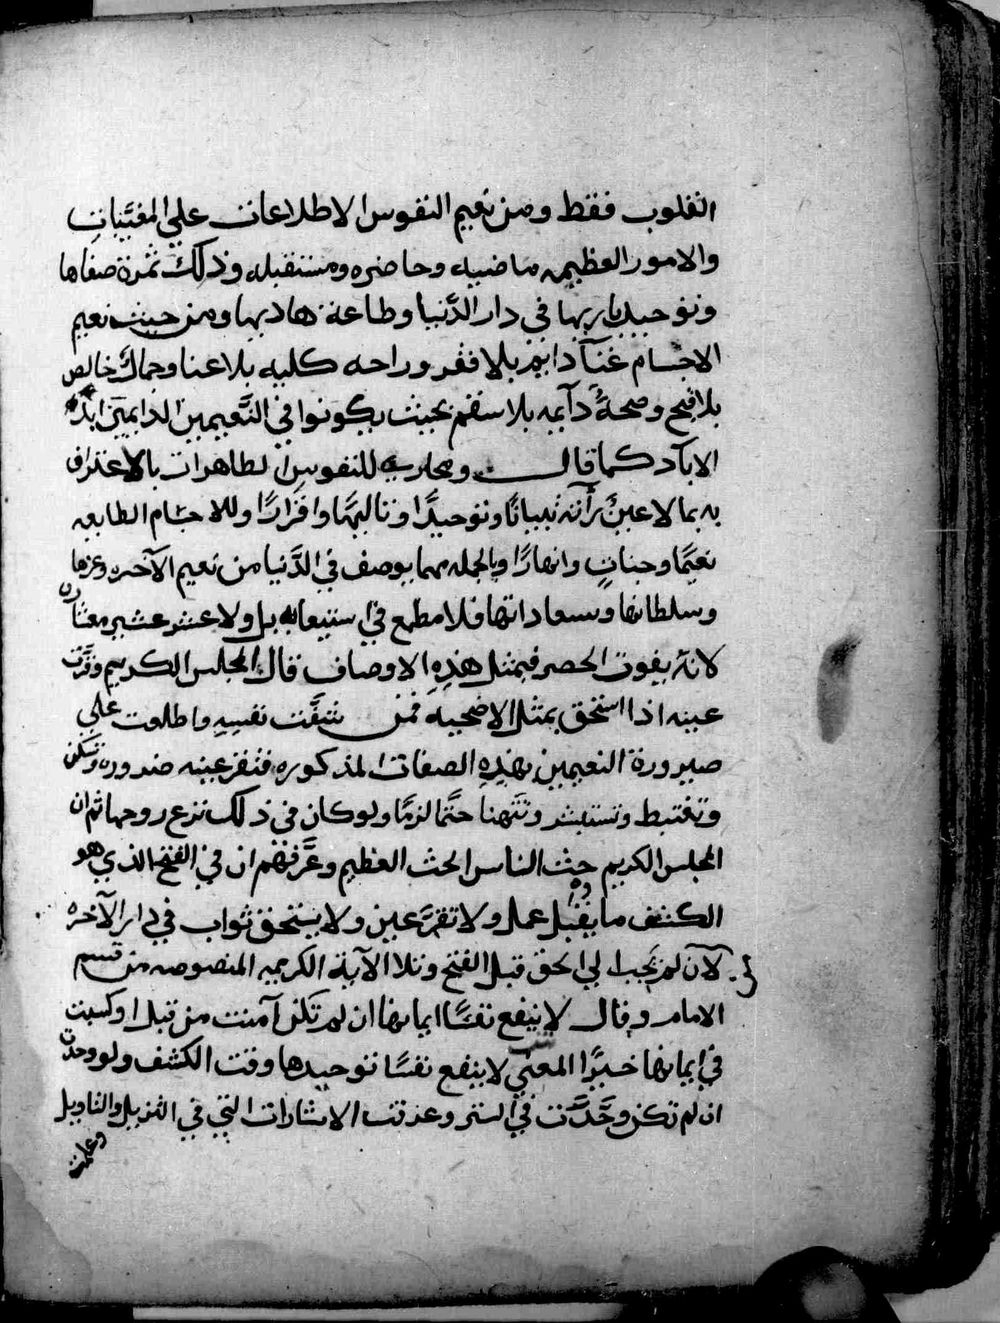 القلوب فقط ومن نعيم النفوس الاطلاعات علي المغيَّبات
والامور العظيمه ماضيه وحاضره ومستقبله وذلك ثمرة صفاها
وتوحيد باريها في دار الدَّنيا وطاعة هاديها ومن حيث نعيم
الاجسام غنآ دايم بلا فقر وراحه كليه بلا عنا وجمال خالص
بلا قبح وصحةٌ دآيمه بلا سقم بحيث يكونوا في النَّعيمين الدايمين ابد
الابآد كما قال ومجازيه للنفوس الطاهرات بالاعتراف
به بما لا عينٌ رأته تبيانًا وتوحيدًا وتاليهًا واقرارًا وللاجسام الطايعه
نعيمًا وجنانٍ وانهارًا وبالجمله مهما يوصف في الدَّنيا من نعيم الآخره وعزها
وسلطانها وسعاداتها فلا مطمع في استيعابه بل ولا عشر عشير معشاره
لانهُ يفوت الحصر فبمثل هذهِ الاوصاف قال المجلس الكريم وقرَّت
عينه اذا استحق بمثل الاضحيه فمن شفَّت نفسهِ واطلعت علي
صيرورة النعيمين بهذهِ الصفات المذكوره فتقر عينه ضرورة وتسكن
وتغتبط وتستبشر وتتهنا حتمًا لزمًا ولو كان في ذلك نزع روحها ثم ان
المجلس الكريم حث الناس الحث العظيم وعرَّفهم ان في الفتح الذي هو
الكشف ما يقبل عمل ولا تقرَّ عين ولا يستحق ثواب في دار الآخره
لان لم يجب الي الحق قبل الفتح وتلا الآية الكريمه المنصوصه من قسم
الامام وقال لا ينفع نفسًا ايمانها ان لم تكن آمنت من قبل او كسبت
في ايمانها خيرًا المعني لا ينفع نفسًا توحيدها وقت الكشف ولو وحدت
ان لم تكن وحَّدَت في الستر وعرفت الاشارات التي في التنزيل والتاويل
وعلمت